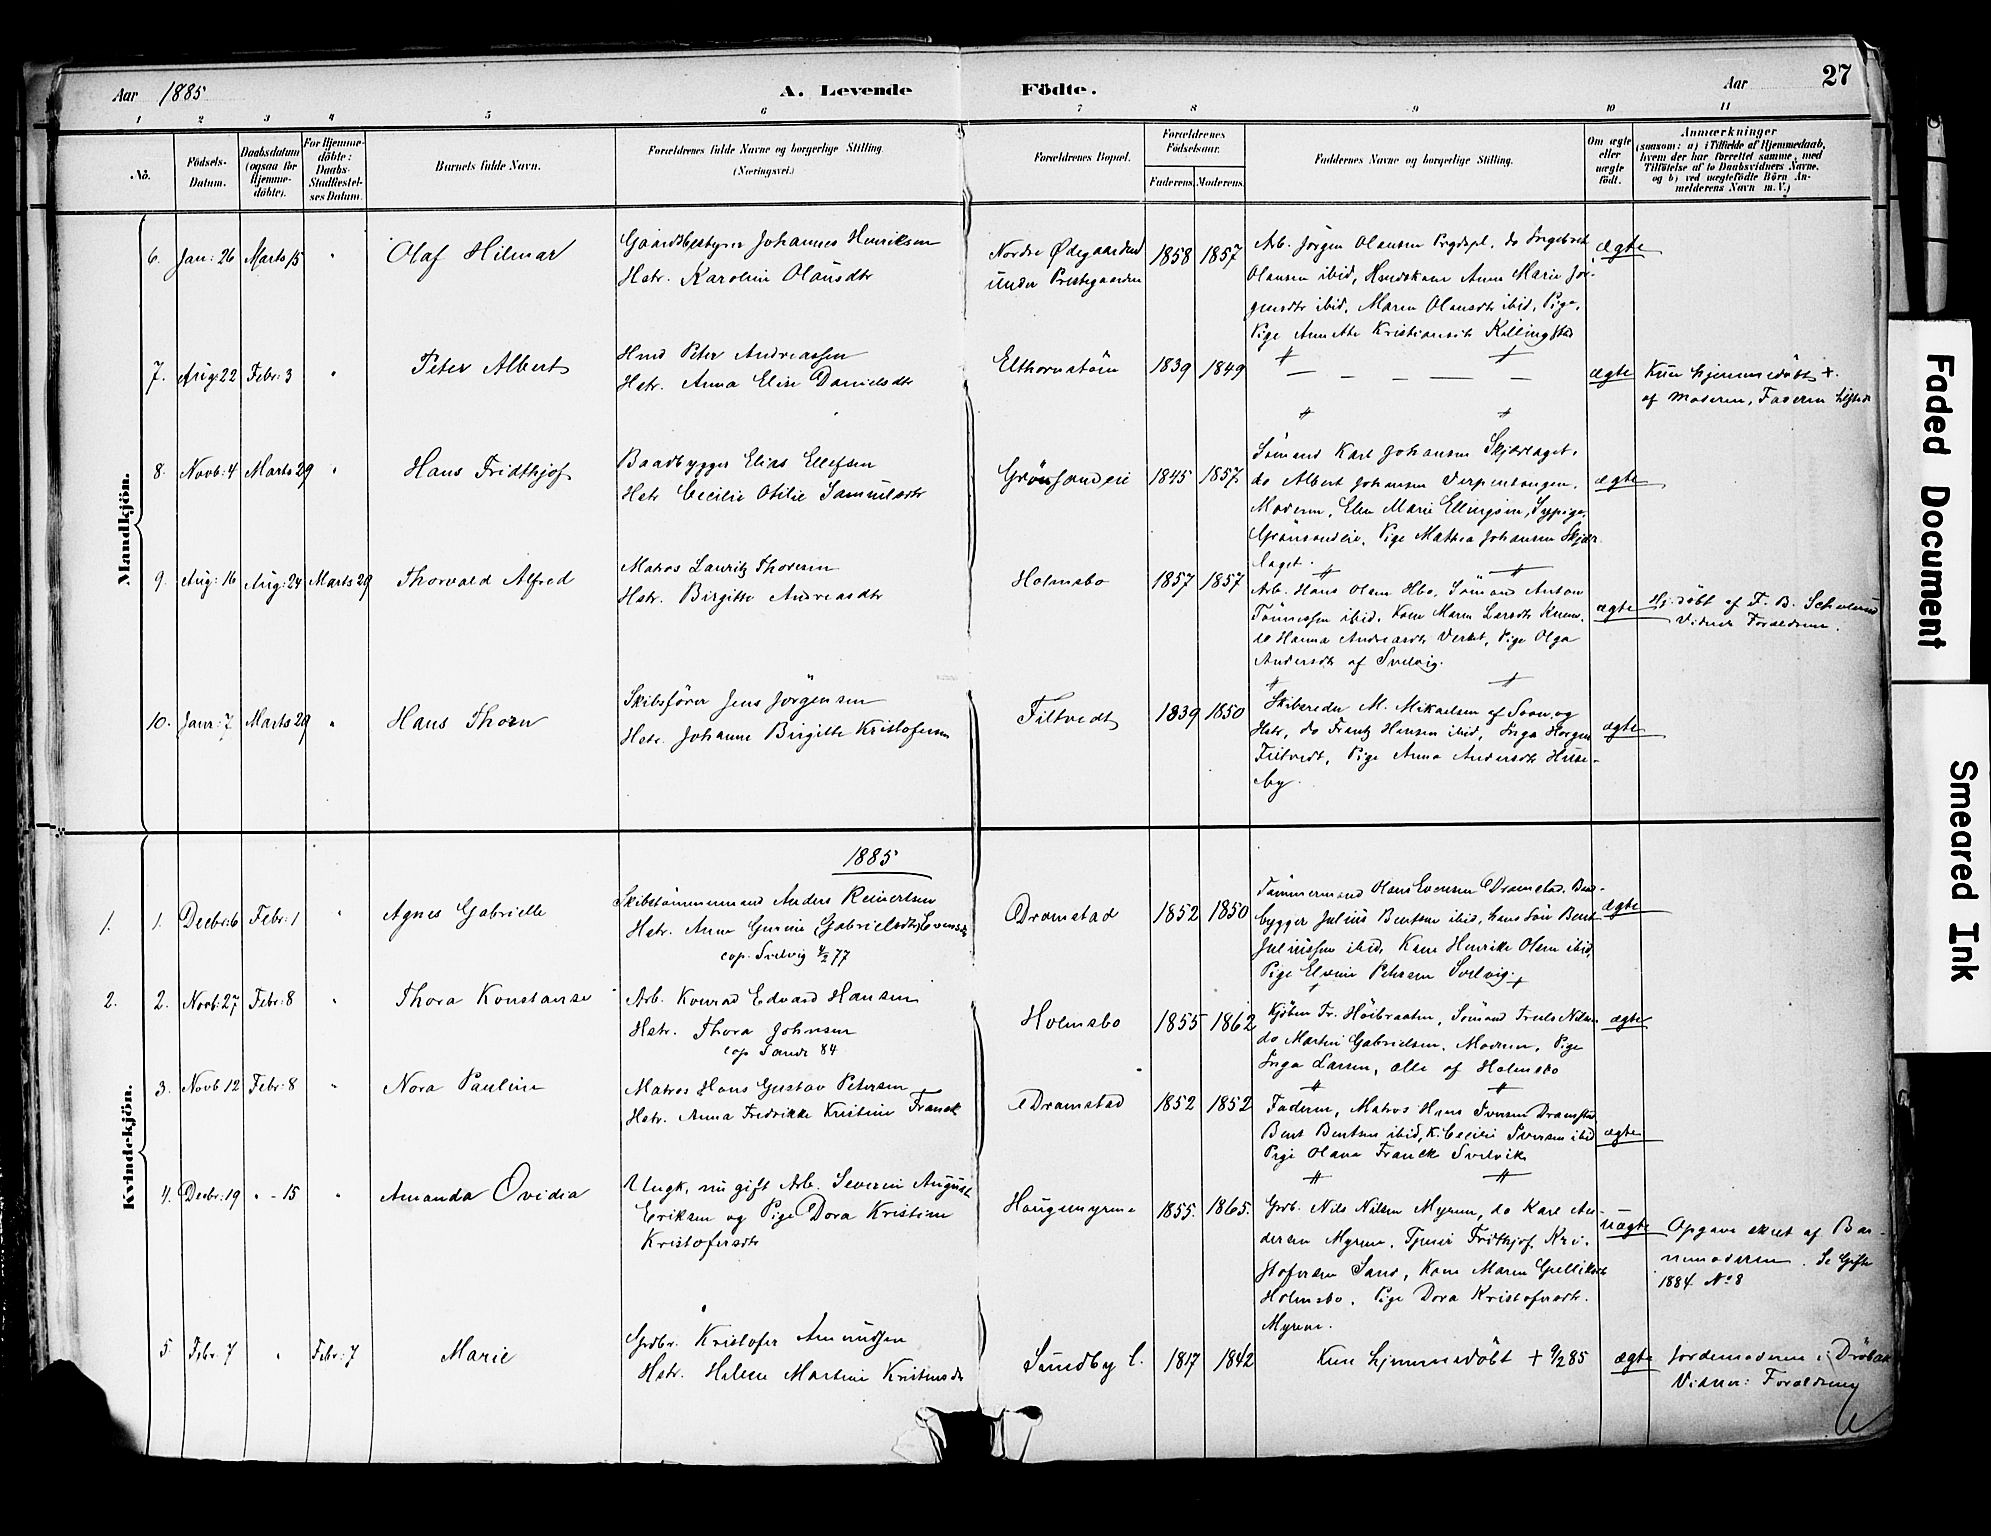 Aar 1885
A. Levende Födte.
Aar 27
1 2 3 4 5 6 7 8 9 10 11
No.
Födsels-
Datum.
Daabsdatum
(ogsaa for
Hjemme-
döbte).
For Hjemme-
döbte:
Daabs-
Stadfæstel-
ses Datum.
Barnets fulde Navn.
Forældrenes fulde Navne og borgerlige Stilling.
(Næringsvei.)
Forældrenes Bopæl.
Forældrenes
Födselsaar.
Faderens. Moderens.
Faddernes Navne og borgerlige Stilling.
Om ægte
eller
uægte
født.
Anmærkninger
(saasom: a) i Tilfælde af Hjemmedaab,
hvem der har forrettet samme, med
Tilföielse af to Daabsvidners Navne,
og b) ved uægtefödte Börn An-
melderens Navn m. V.)
Mandkjön.
6. Jan: 26 Marts 15 " Olaf Hilmar
Gaardsbestyrer Johannes Henriksen
Hstr. Karoline Olausdtr
Nordre Ødegaarden
under Prestegaarden
1858 1857
Arb. Jörgen Olausen Prgdspl. do Ingebret
Olausen ibid, Anne Marie Jör-
gensdtr ibid, Maren Olausdtr ibid, Pige,
Pige Annette Kristiansdtr Killingstad
ægte
7. Aug: 22 Febr: 3 " Peter Albert
Hmd Peter Andreassen
Hstr. Anna Elise Danielsdtr
1839 1849
— — — — —
ægte
Kun hjemmedöbt +.
af Moderen, Faderen tilstede
8. Novb: 4 Marts 29 " Hans Fridthjof
Baadbygger Elias Ellefsen
Hstr Cecilie Otilie Samuelsdtr
Grönsandeie
1845 1857
Sömand Karl Johansen Skjærlaget,
do Albert Johansen Verpentangen,
Moderen, Elen Marie Ellingsen, Sypige,
Grönsandeie, Pige Mathea Johansen Skjær-
laget.
ægte
9. Aug: 16 Aug: 24 Marts 29 Thorvald Alfred
Matros Lauritz Thoresen
Hstr. Birgitte Andreasdtr
Holmsbo
1857 1857
Arb. Hans Olsen Hbo, Sömand Anton
Tönnessen ibid, Kone Maren Larsdtr
do Hanna Andreasdtr Verket, Pige Olga
Andersdtr af Svelvig.
ægte
Hj. döbt af F. B.
Vidner Forældrene.
10. Janr: 7 Marts 29 " Hans Thorn
Skibsförer Jens Jörgensen
Hstr. Johanne Birgitte Kristofersen
Filtvedt
1839 1850
Skibsreder M. Mikaelsen af Soon og
Hstr, do Frantz Hansen ibid, Inga Horgen
Filtvedt, Pige Anna Andersdtr Huse-
by.
ægte
Kvindekjön.
1885
1. 1. Decbr: 6 Febr: 1 " Agnes Gabrielle
Skibstömmermand Anders Reinertsen
Hstr. Anne Gurine (Gabrielsdtr) Evensdtr
cop. Svelvig 4/2 77
Dramstad
1852 1850
Tömmermand Hans Evensen Dramstad. Baad-
bygger Julius Bentsen ibid, hans Sön Bent
Juliussen ibid, Kone Henrikke Olsen ibid,
Pige Elvine Petersen Svelvig.
ægte
2. 2. Novb: 27 Febr: 8 " Thora Konstanse
Arb. Konrad Edvard Hansen
Hstr. Thora Johnsen
cop Sande 84
Holmsbo
1855 1862
Kjöbm Fr. Höibraaten, Sömand Truls Nilsen
do Martin Gabrielsen, Moderen, Pige
Inga Larsen, alle af Holmsbo
ægte
3. Novb 12 Febr: 8 " Nora Pauline
Matros Hans Gustav Petersen
Hstr. Anna Fredrikke Kristine Franck
Dramstad
1852 1852
Faderen, Matros Hans Iversen Dramstad
Bent Bentsen ibid, K. Cecilie Iversen ibid
Pige Olava Franck Svelvik
ægte
4. Decbr: 19 " - 15 " Amanda Ovidia
Ungk, nu gift Arb. Severin August
Eriksen og Pige Dora Kristine
Kristofersdtr
Haugenmyrene
1855. 1865.
Grdb. Nils Nilsen Myren, do Karl An-
dersen Myren, Tjener Fridthjof Kri-
stofersen Sand, Kone Maren Gulliksdtr
Holmsbo, Pige Dora Kristofersdtr.
Myrene.
uægte
Opgave skeet af Bar-
nemoderen. Se Gifte
1884 No 8
5. Febr: 7 " Febr: 7 Marie
Grdbr. Kristofer Amundsen
Hstr. Helene Martine Kristensdtr
Sundby l.
1817 1842
Kun hjemmedöbt + 9/2 85
ægte
Jordemoderen i Dröbak
Vidner: Forældrene
Faded Document
Smeared Ink